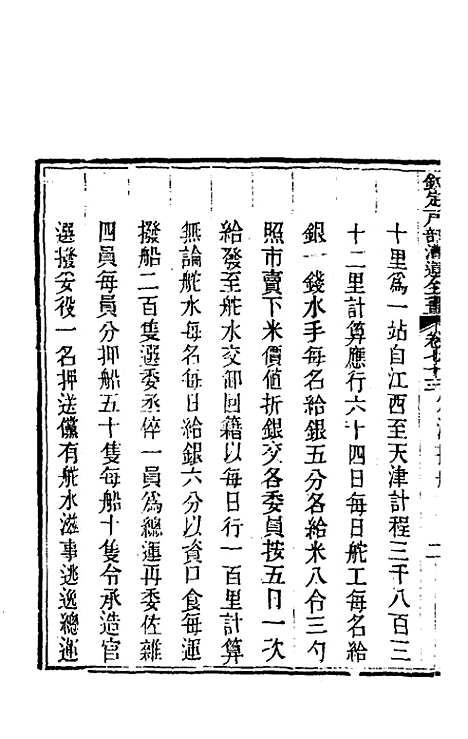 欽定戶部漕運全書 卷七十三
十里爲一站自江西至天津計程三千八百三
十二里計算應行六十四日每日舵工每名給
銀一錢水手每名給銀五分各給米八合三勺
照市賣下米價値折銀交各委員按五日一次
給發至舵水交卸回籍以每日行一百里計算
無論舵水每名每日給銀六分以資口食每運
撥船二百隻選委丞倅一員爲總運再委佐雜
四員每員分押船五十隻每船十隻令承造官
選撥妥役一名押送儻有舵水滋事逃逸總運